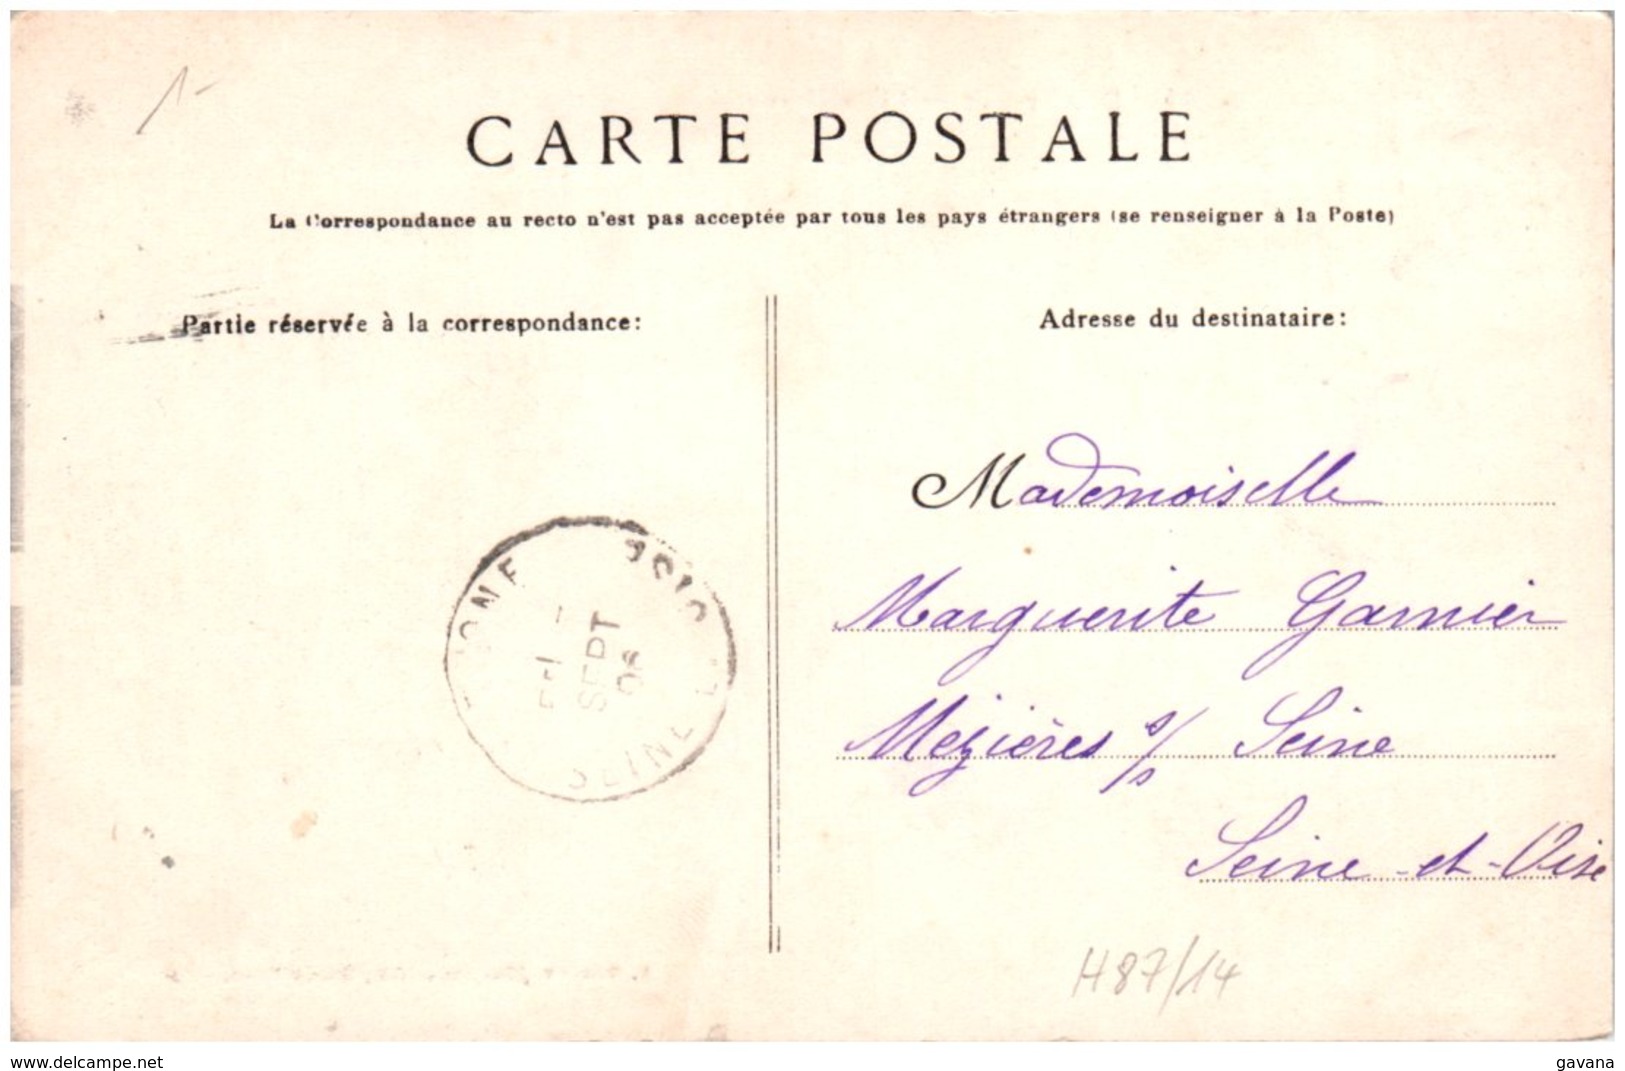 1-
CARTE POSTALE
La Correspondance au recto n'est pas acceptée par tous les pays étrangers (se renseigner à la Poste)
Partie réservée à la correspondance:
Adresse du destinataire:
Mademoiselle
Marguerite Garnier
Mézières s/s Seine
Seine-et-Oise
SEPT
SEINE
H87/14
www.delcampe.net
gavana